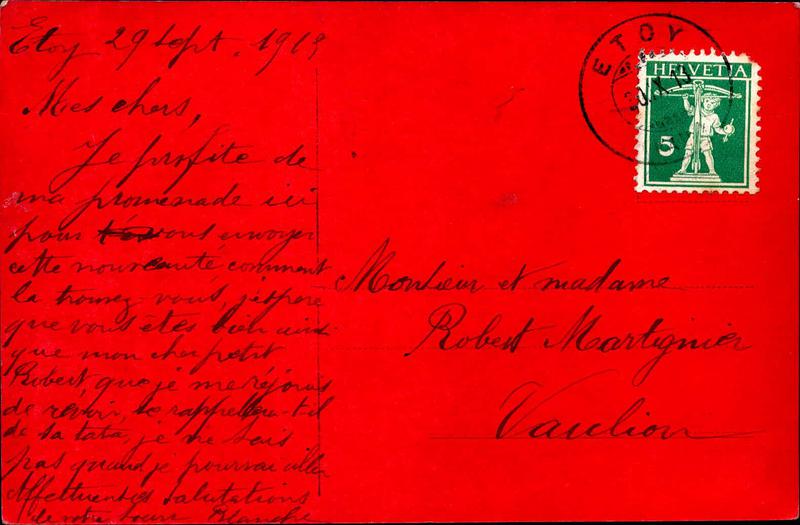 Etoy 29 Sept. 1913
Mes chers,
Je profite de
ma promenade ici
pour vous envoyer
cette nouveauté comment
la trouvez vous, j'espère
que vous êtes bien ainsi
que mon cher petit
Robert, que je me réjouis
de revoir, se rappellera-t-il
de sa tata, je ne sais
pas quand je pourrai aller
Affectueuses salutations
de votre soeur Blanche
ETOY
HELVETIA
5
Monsieur et madame
Robert Martignier
Vaulion